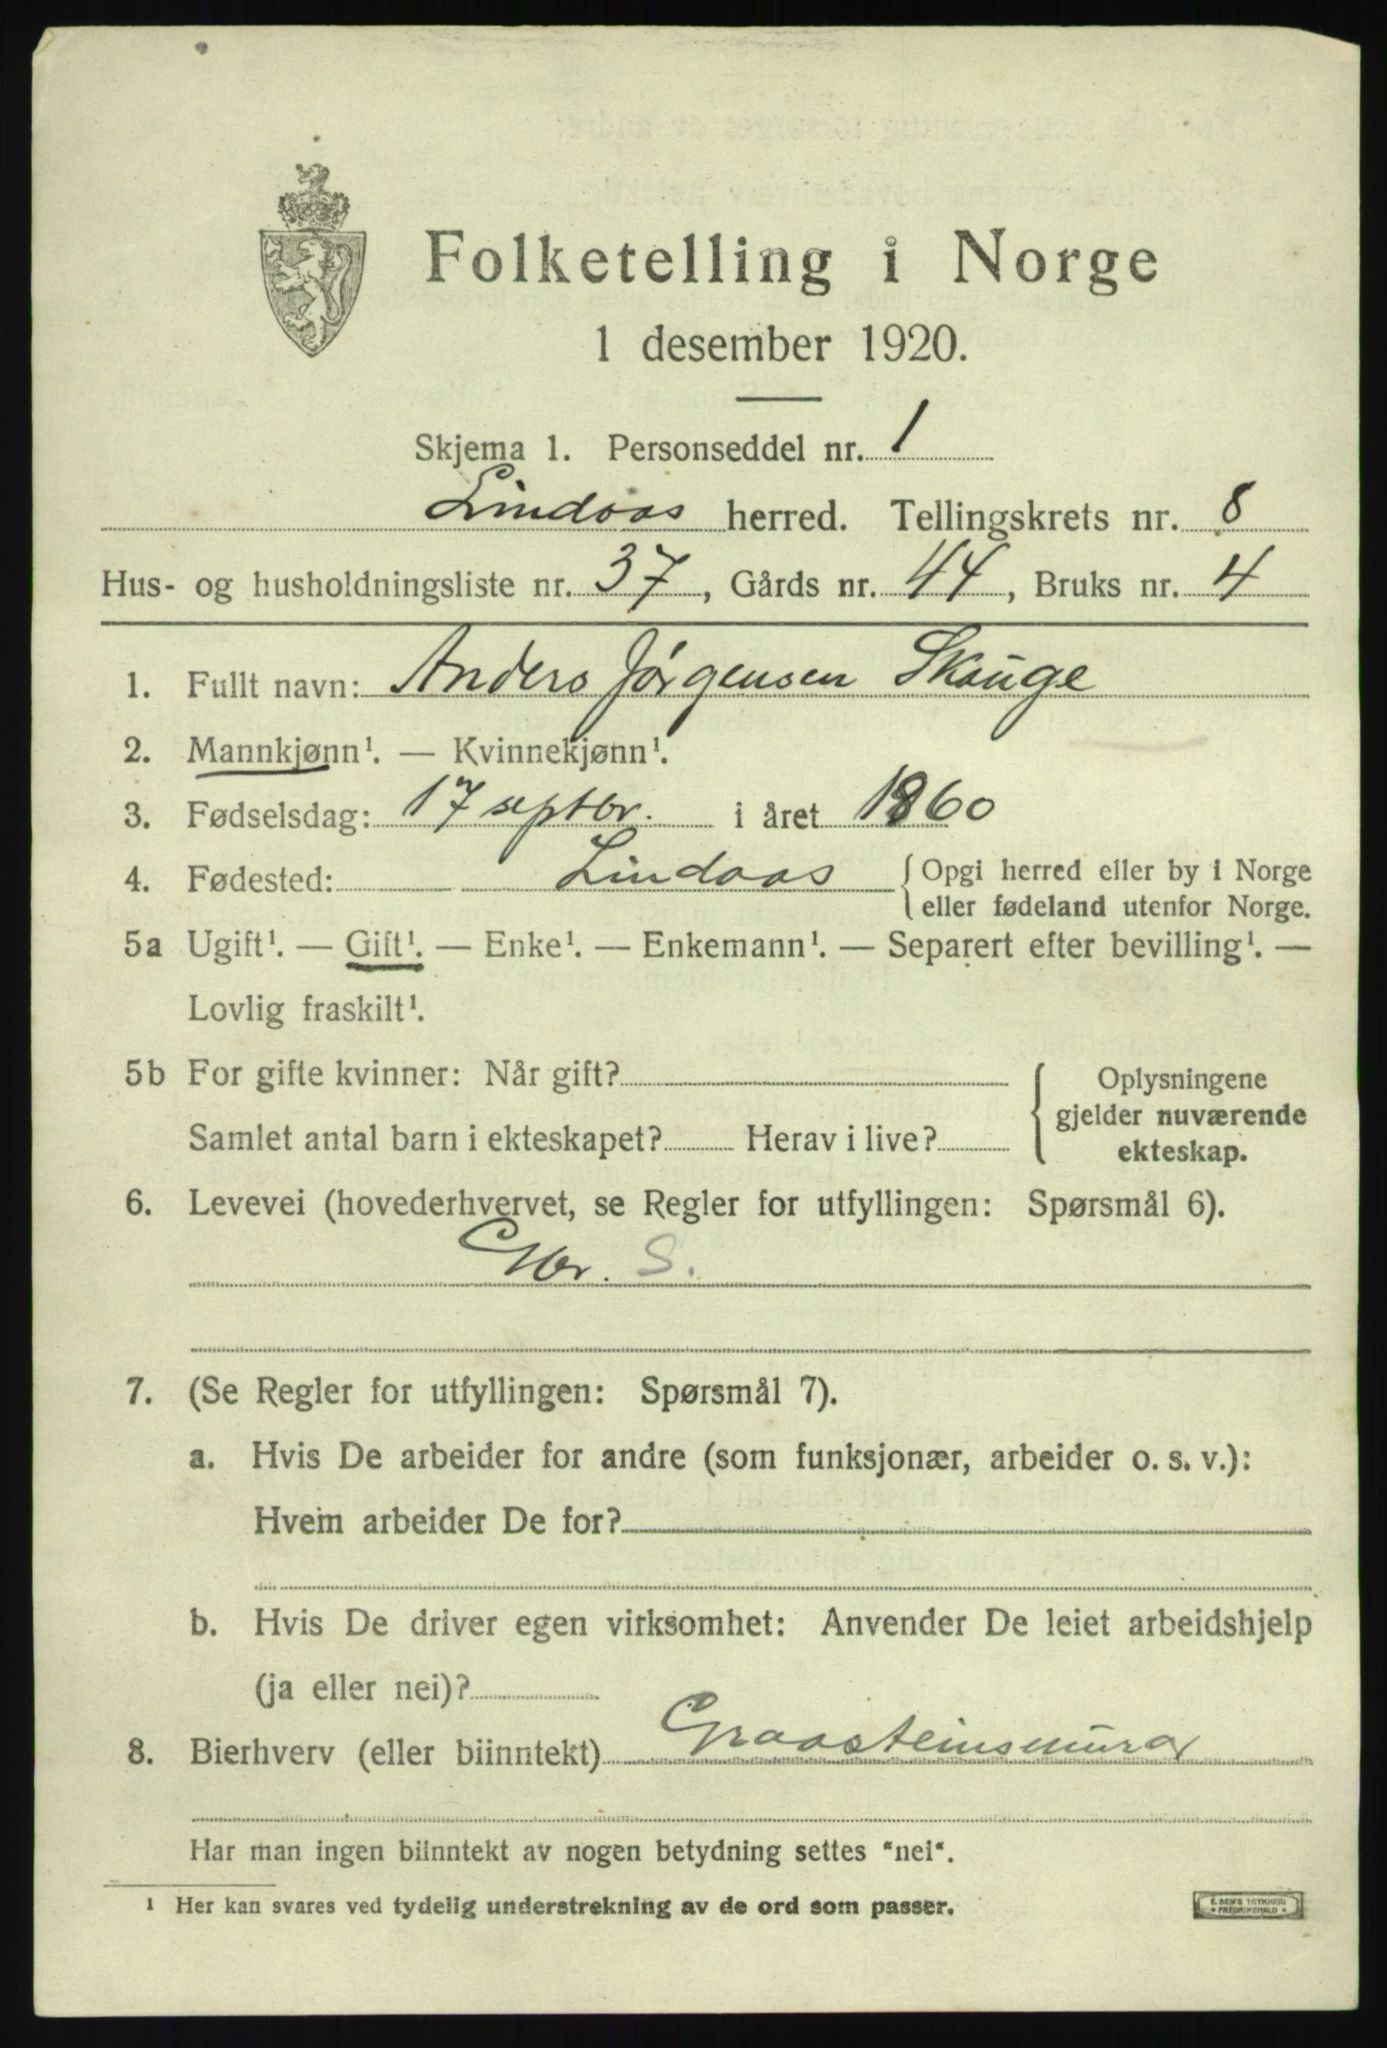 Folketelling i Norge
1 desember 1920.
Skjema 1. Personseddel nr. 1
Lindaas herred. Tellingskrets nr. 8
Hus- og husholdningsliste nr. 37, Gårds nr. 44, Bruks nr. 4
1. Fullt navn: Anders Jørgensen Skauge
2. Mannkjønn¹. — Kvinnekjønn¹.
3. Fødselsdag: 17 septbr. i året 1860
4. Fødested: Lindaas {Opgi herred eller by i Norge
eller fødeland utenfor Norge.
5a Ugift¹. — Gift¹. — Enke¹. — Enkemann¹. — Separert efter bevilling¹. —
Lovlig fraskilt¹.
5b For gifte kvinner: Når gift?
Samlet antal barn i ekteskapet? Herav i live?
{Oplysningene
gjelder nuværende
ekteskap.
6. Levevei (hovederhvervet, se Regler for utfyllingen: Spørsmål 6).
S.
7. (Se Regler for utfyllingen: Spørsmål 7).
a. Hvis De arbeider for andre (som funksjonær, arbeider o. s. v.):
Hvem arbeider De for?
b. Hvis De driver egen virksomhet: Anvender De leiet arbeidshjelp
(ja eller nei)?
8. Bierhverv (eller biinntekt) Graasteinsmurar
Har man ingen biinntekt av nogen betydning settes "nei".
¹ Her kan svares ved tydelig understrekning av de ord som passer.
E. SEM'S TRYKKERI
* FREDRIKSHALD *